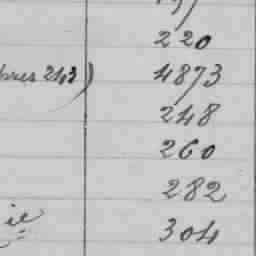 220
243) 4873
248
260
282
ie 304